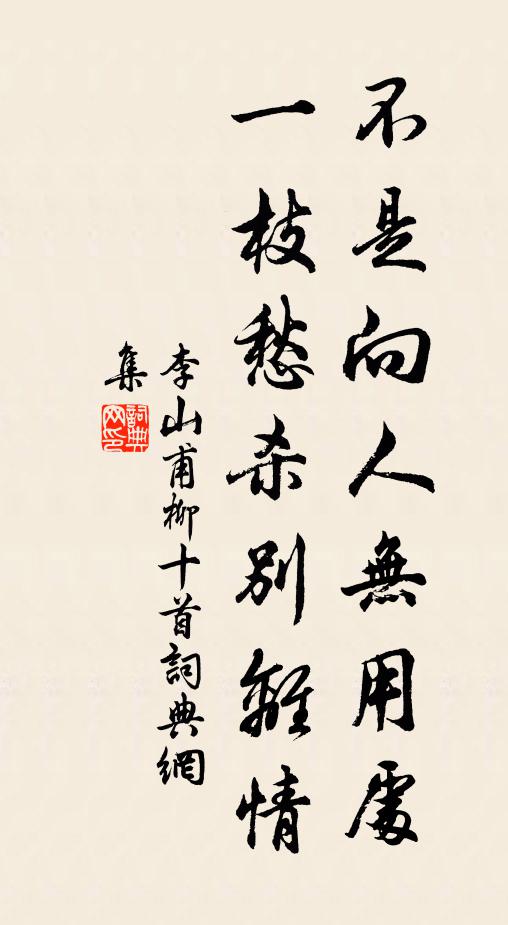 不是向人無用處
一枝愁杀別離情
李山甫柳十首詞典網
集
詞典網印